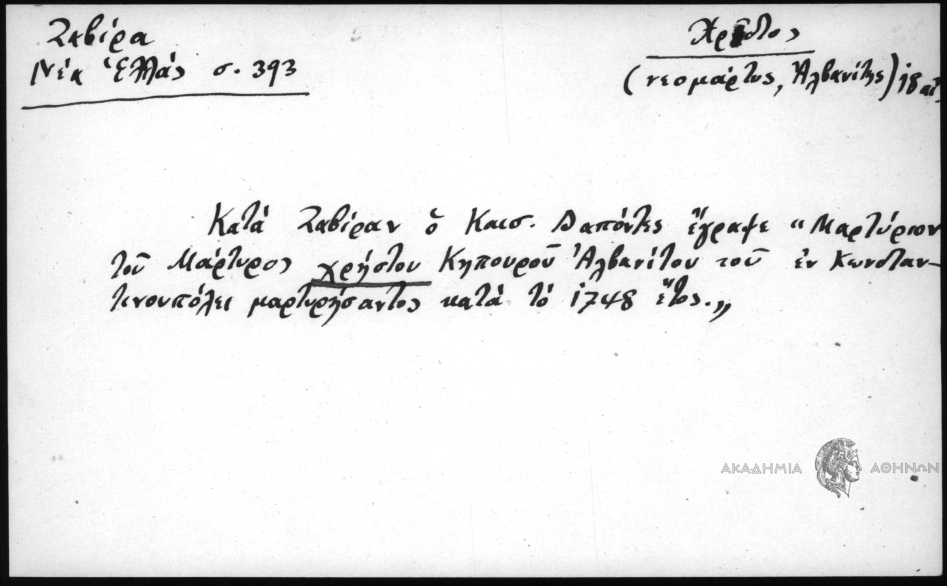 Ζαβίρα
Νέα Ἑλλάς σ. 393
Χρῆστος
(νεομάρτυς, Ἀλβανίτης) 18 αἰ.
Κατά Ζαβίραν ὁ Καισ. Δαπόντες ἔγραψε „Μαρτύριον
τοῦ Μάρτυρος χρήστου Κηπουροῦ Ἀλβανίτου τοῦ ἐν Κωνσταν-
τινουπόλει μαρτυρήσαντος κατά τό 1748 ἔτος.„
ΑΚΑΔΗΜΙΑ ΑΘΗΝΩΝ